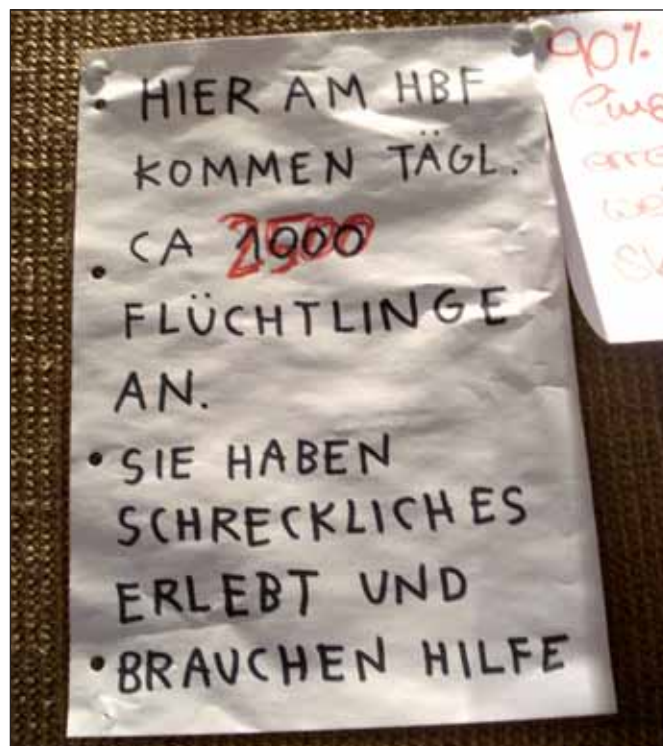 • HIER AM HBF
KOMMEN TÄGL.
CA 1000 2500
• FLÜCHTLINGE
AN.
• SIE HABEN
SCHRECKLICHES
ERLEBT UND
• BRAUCHEN HILFE
90%